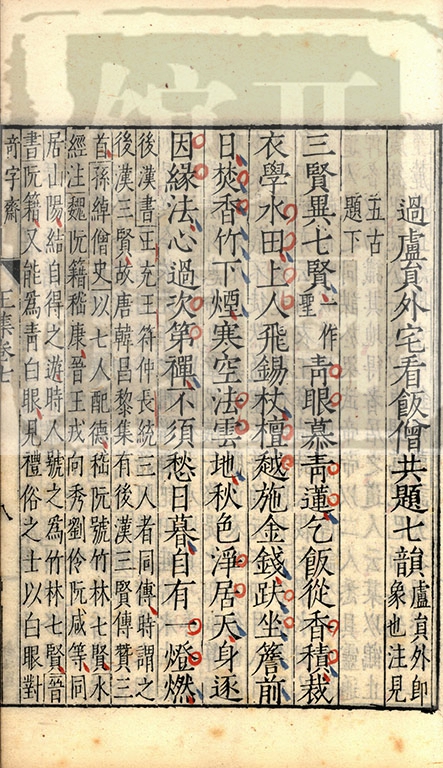 過盧員外宅看飯僧共題七韻盧員外即象也注見
五古
題下
三賢異七賢一作聖青眼慕青蓮乞飯從香積裁
衣學水田上人飛錫杖檀越施金錢趺坐簷前
日焚香竹下煙寒空法雲地秋色淨居天身逐
因緣法心過次第禪不須愁日暮自有一燈燃
後漢書王充王符仲長統三人者同傳時謂之
後漢三賢故唐韓昌黎集有後漢三賢傳贊三
首孫綽僧史以七人配德嵇阮號竹林七賢水
經注魏阮籍嵇康晉王戎向秀劉伶阮咸等同
居山陽結自得之遊時人號之為竹林七賢晉
書阮籍又能為青白眼見禮俗之士以白眼對
奇字齋 王集卷七 八